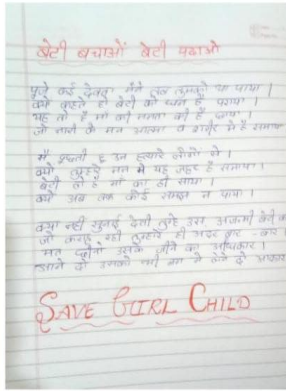 बेटी बचाओं बेटी पढाओ
पूजे कई देवता मैने तब तुमको था पाया ।
क्यों कहते हो बेटी को धन है पराया ।
यह तो है माँ की ममता की है छाया ।
जो नारी के मन आत्मा व शरीर में है समाया
मैं पूछती हूं उन हत्यारे लोगों से ।
क्यों तुम्हारे मन में यह जहर है समाया ।
बेटी तो है माँ का ही साया ।
क्यों अब तक कोई समझ न पाया ।
क्या नहीं सुनाई देती तुम्हे उस अजन्मी बेटी की
जो कराह रही तुम्हारे ही अंदर बार - बार ।
मत छीनो उसके जीने का अधिकार ।
आने दो उसको भी जग में लेने दो आकार
SAVE GIRL CHILD